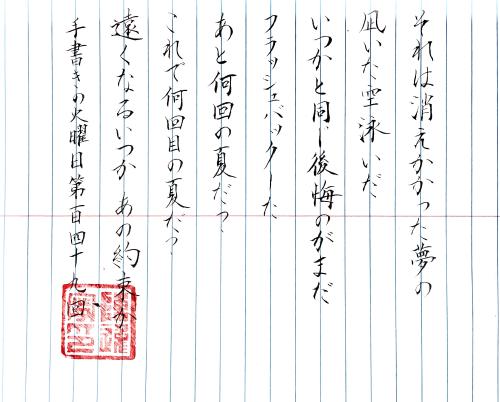 それは消えかかった夢の
凪いだ空泳いだ
いつかと同じ後悔のがまだ
フラッシュバックした
あと何回の夏だ
これで何回目の夏だ
遠くなるいつか あの約束が
手書きの火曜日第百四十九回、